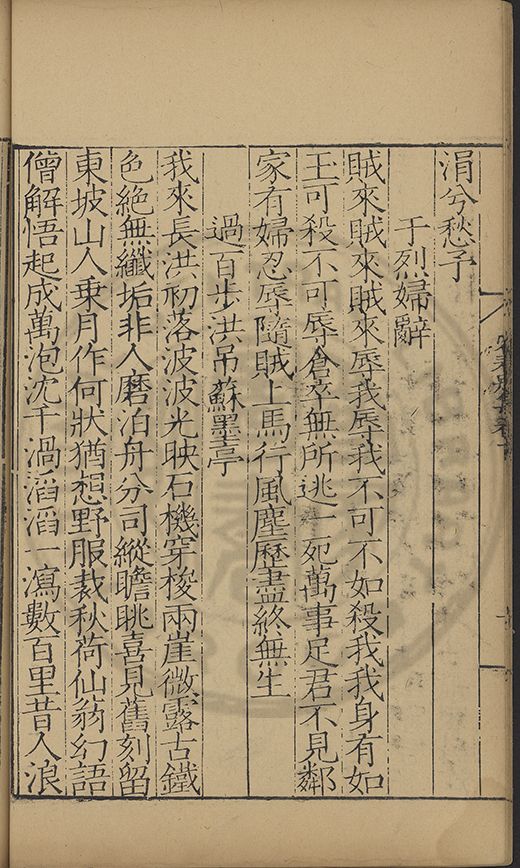 涓兮愁予
于烈婦辭
賊來賊來賊來辱我辱我不可不如殺我我身有如
玉可殺不可辱倉卒無所逃一死萬事足君不見鄰
家有婦忍辱隨賊上馬行風塵歷盡終無生
過百步洪吊蘇墨亭
我來長洪初落波波光映石機穿梭兩崖微露古鐵
色絶無纖垢非人磨泊舟分司縱瞻眺喜見舊刻留
東坡山人乗月作何狀猶想野服裁秋荷仙翁幻語
僧解悟起成萬泡沈千渦滔滔一瀉數百里昔人浪